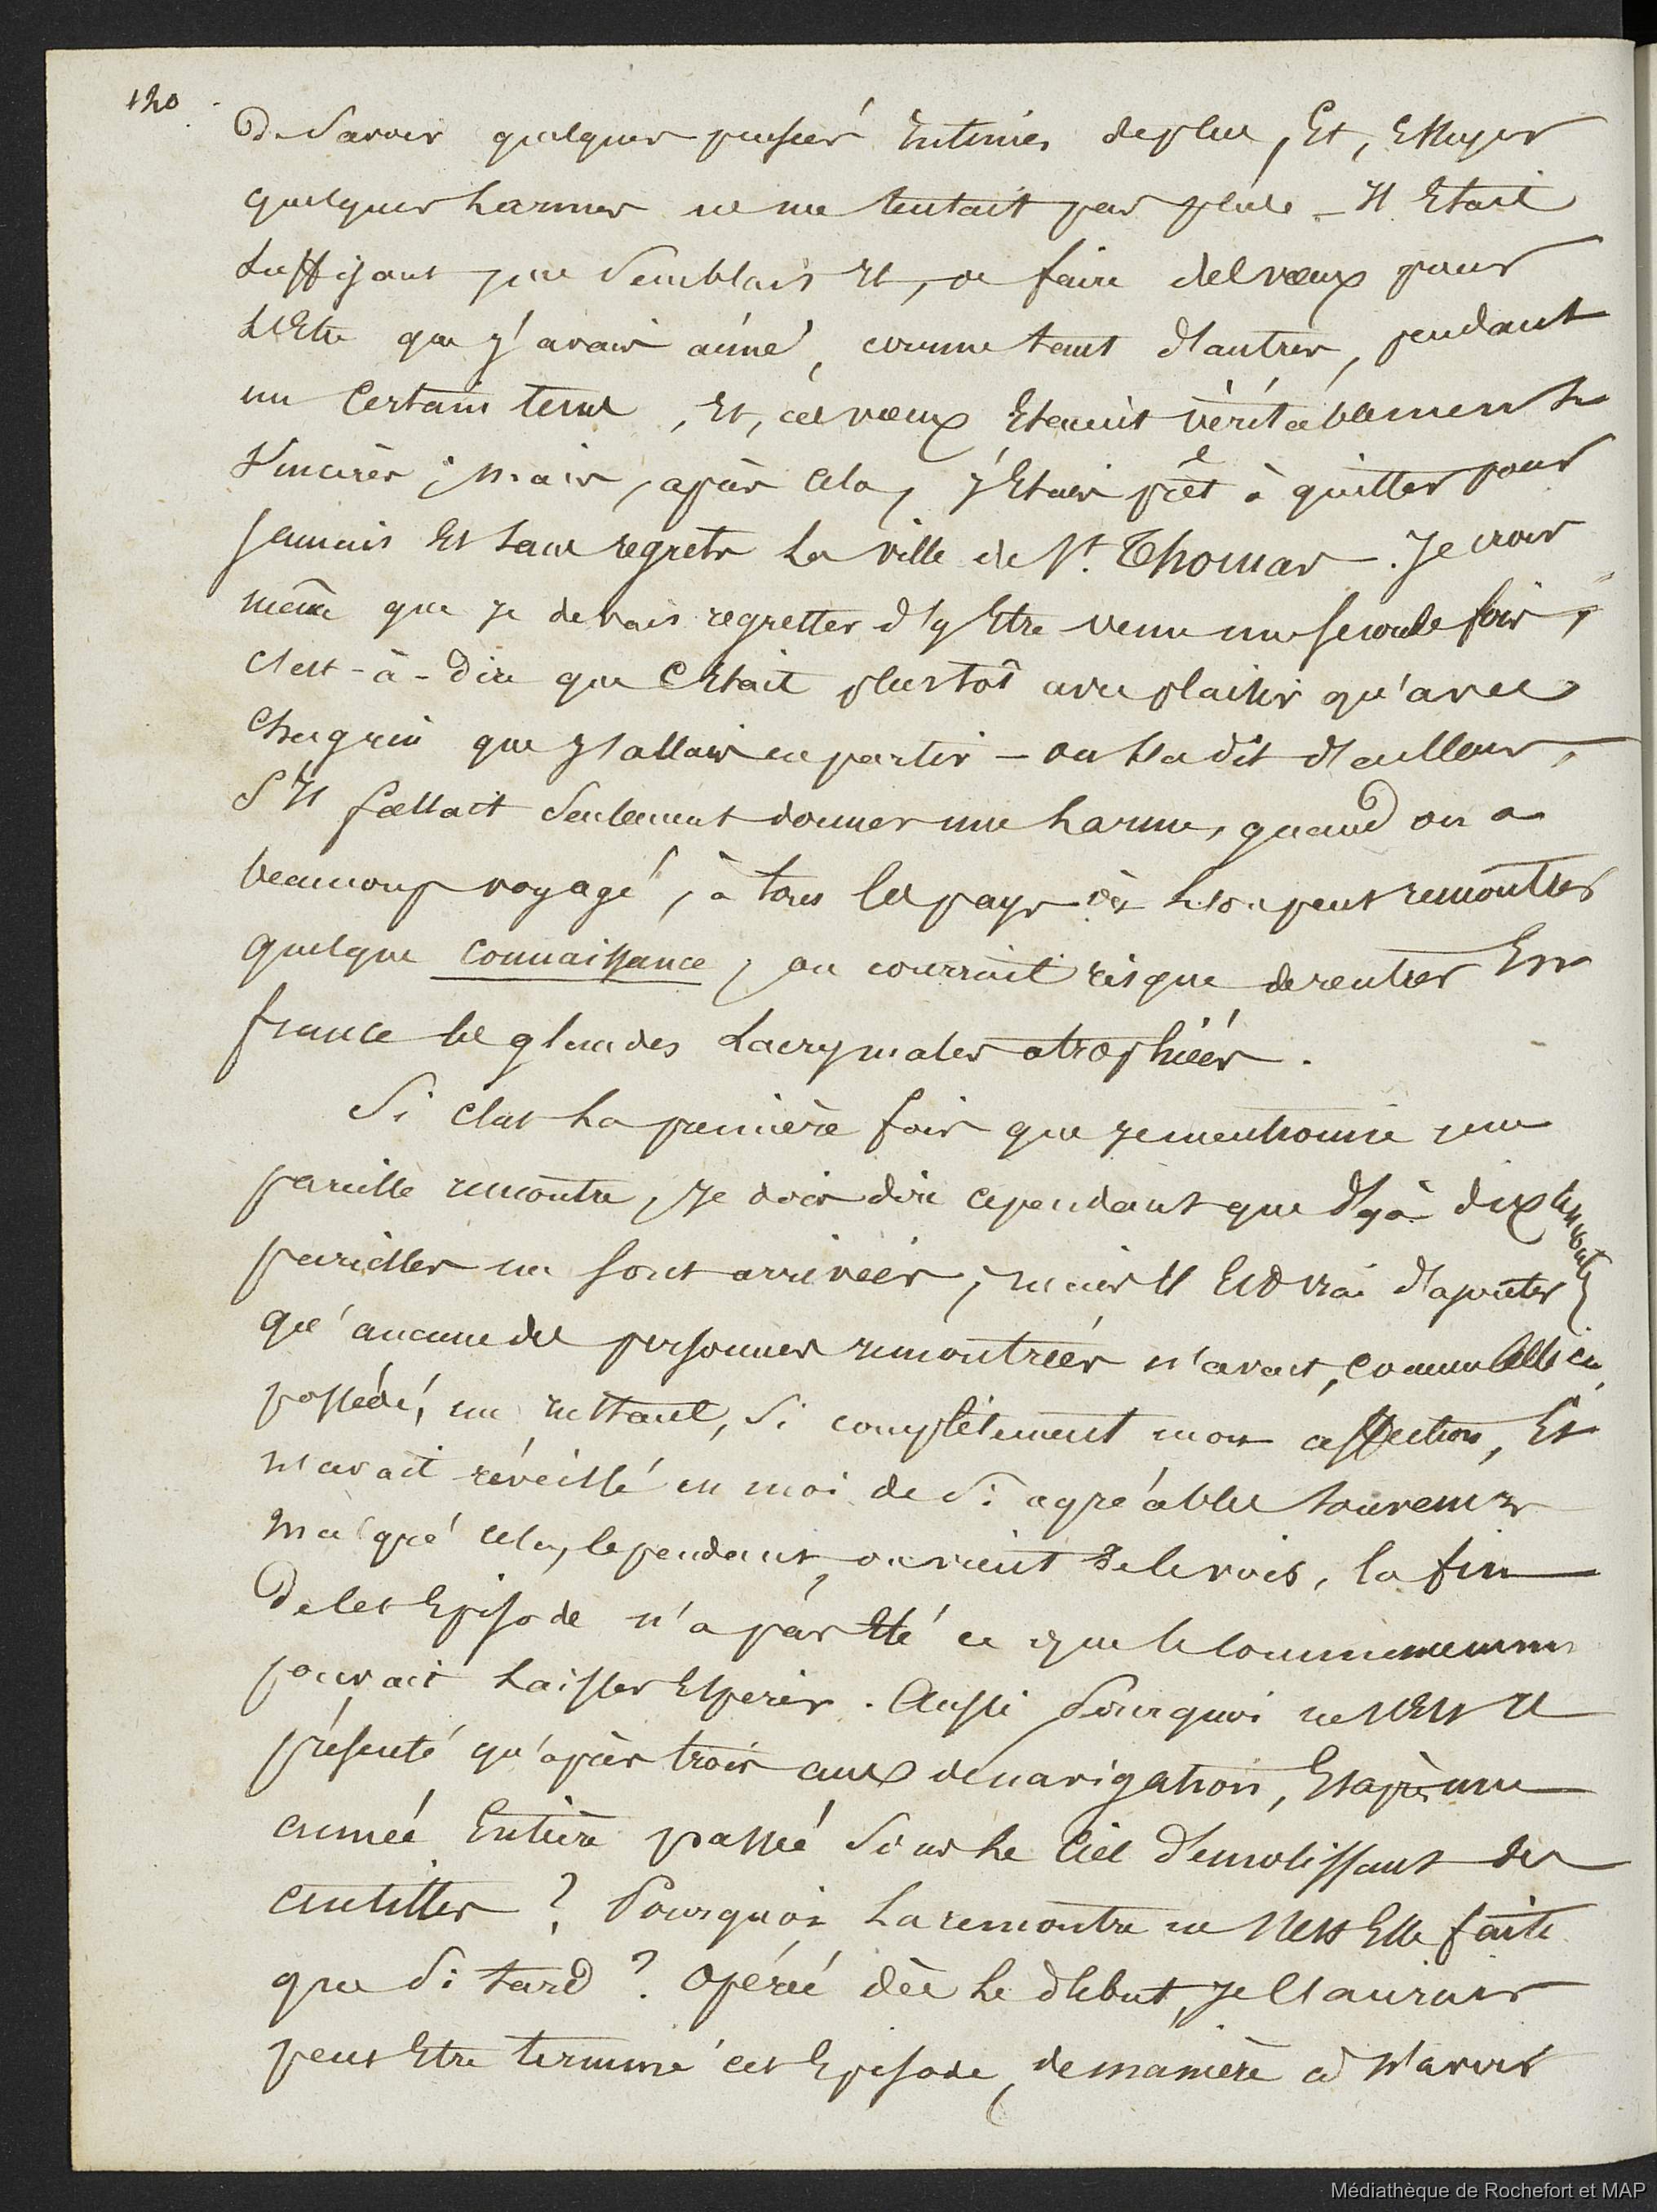 120
De savoir quelques pensées Intimes de plus, Et, Essuyer
quelques larmes ne me tentait pas plus – Il Etait
suffisant me semblait Il, de faire des vœux pour
L'Etre que j'avais aimé, comme tant d'autres, pendant
un Certain tems, Et, ces vœux Etaient véritablement
Sincères ; Mais, après Cela, j'Etais prêt à quitter pour
Jamais Et sans regrets La ville de St. Thomas. Je crois
même que je devais regretter d'y Etre venu une seconde fois,
C'est-à-Dire que C'Etait plustôt avec plaisir qu'avec
Chagrin que j'allais en partir – on l'a dit d'ailleurs,
S'Il fallait seulement donner une larme, quand on a
beaucoup voyagé, à tous les pays où L'on peut rencontrer
quelque connaissance, on courrait risque de rentrer En
france les glandes Lacrymales atrophiées.
Si c'est La première fois que je mentionne une
pareille rencontre, Je dois dire cependant que déjà dix rencontres
pareilles me sont arrivées ; mais Il Est vrai d'ajouter
qu'aucune des personnes rencontrées n'avait, comme Celle ci,
possédé, un Instant, si complètement mon affection, Et
n'avait réveillé en moi de si agréables souvenirs
Malgré cela, Cependant, on vient de le voir, la fin
De cet Episode n'a pas Eté ce que le Commencement
pouvait Laisser Espérer. Aussi Pourquoi ne s'Est Il
présenté qu'après trois ans de navigation, Et après une
année Entière passée Sous Le Ciel d'émolissant des
antilles ? Pourquoi La rencontre ne s'est Elle faite
que si tard ? Opérée dès Le début, je l'aurais
peut Etre terminé cet Episode, de manière à n'avoir
Médiathèque de Rochefort et MAP